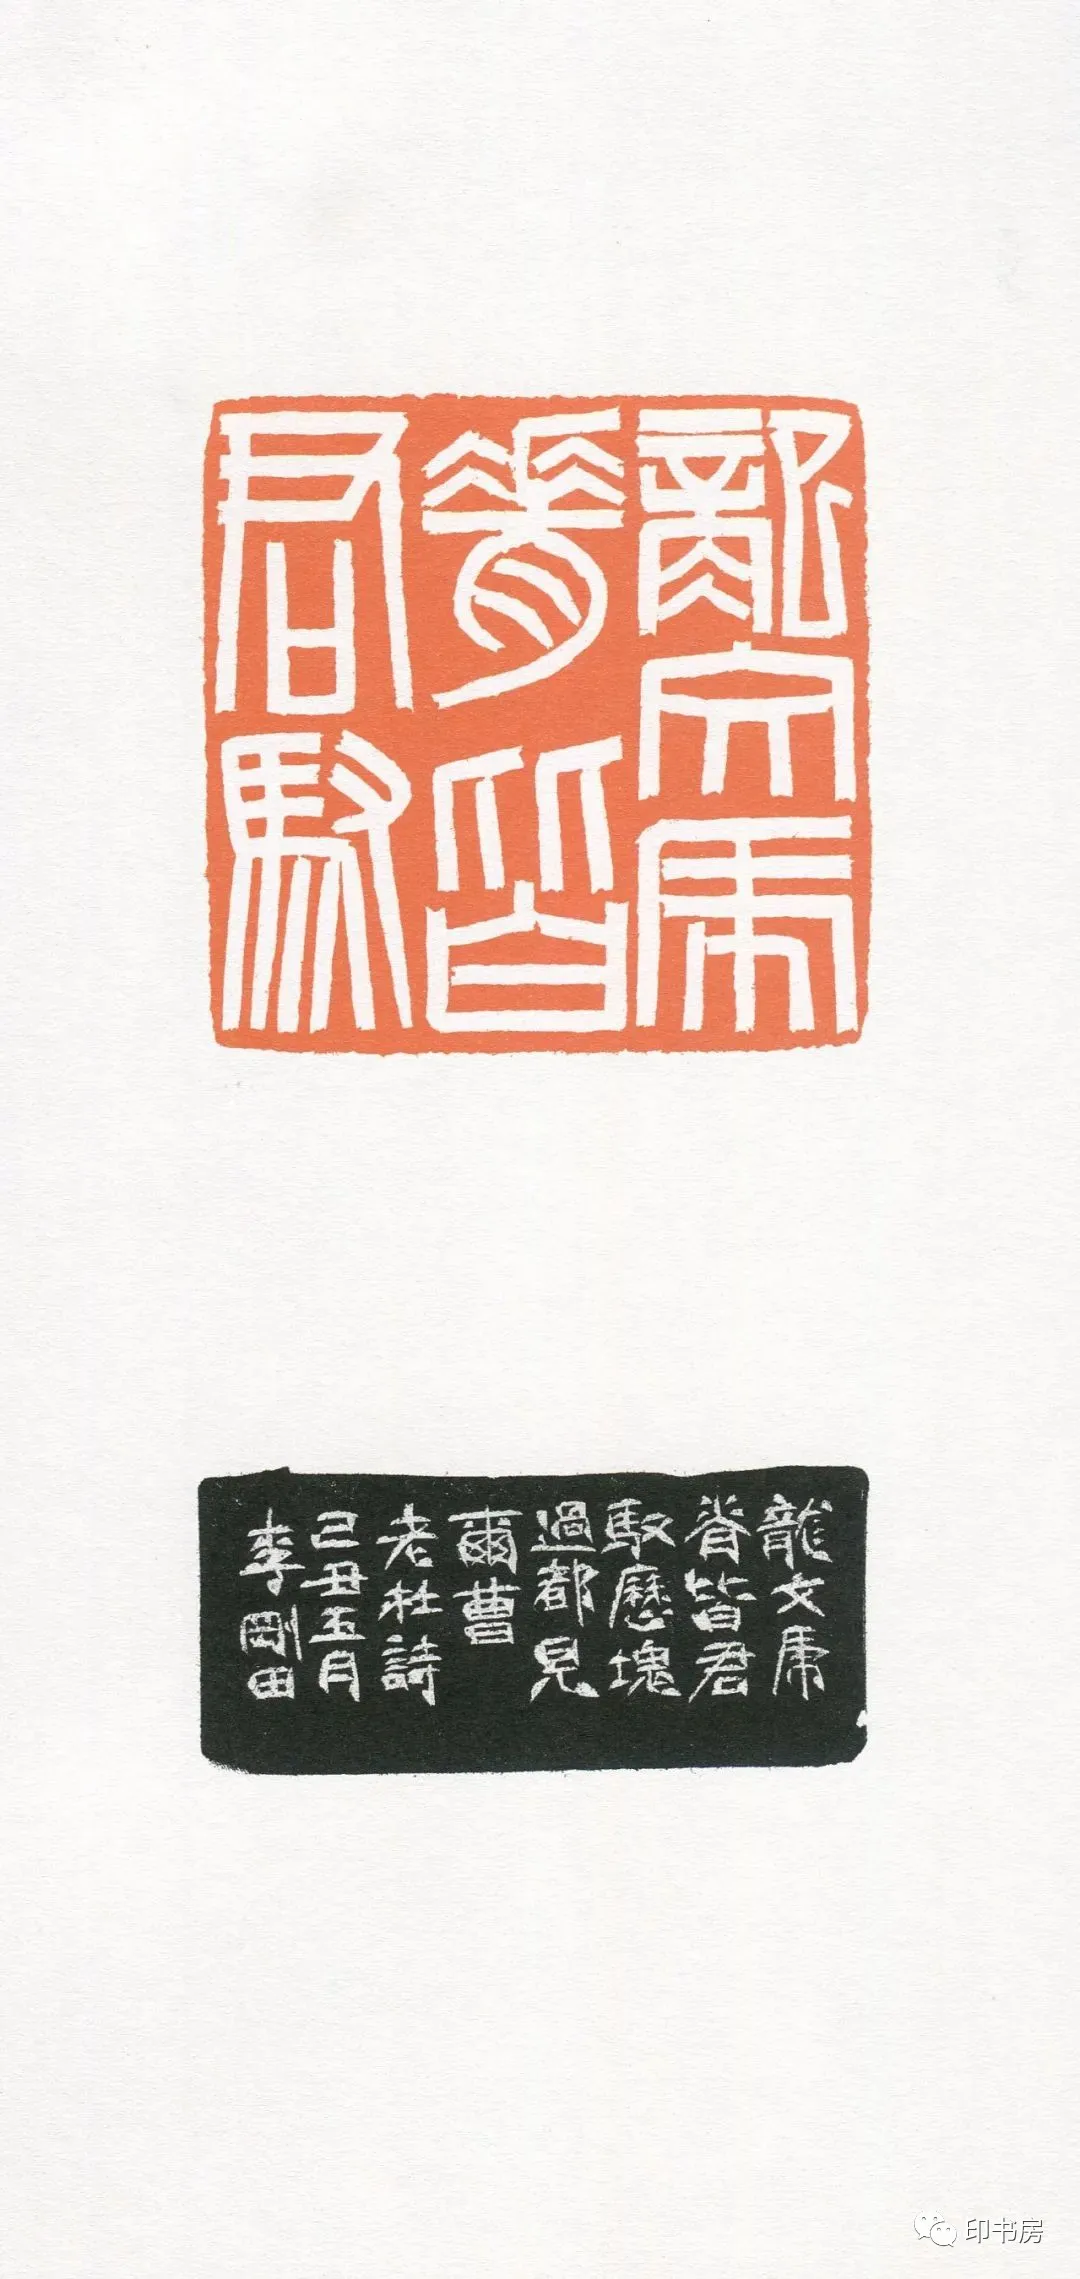 龍文虎
脊皆
君馭
龍文虎
脊皆君
馭歷塊
過都見
爾曹
老杜詩
己丑五月
李剛田
印书房